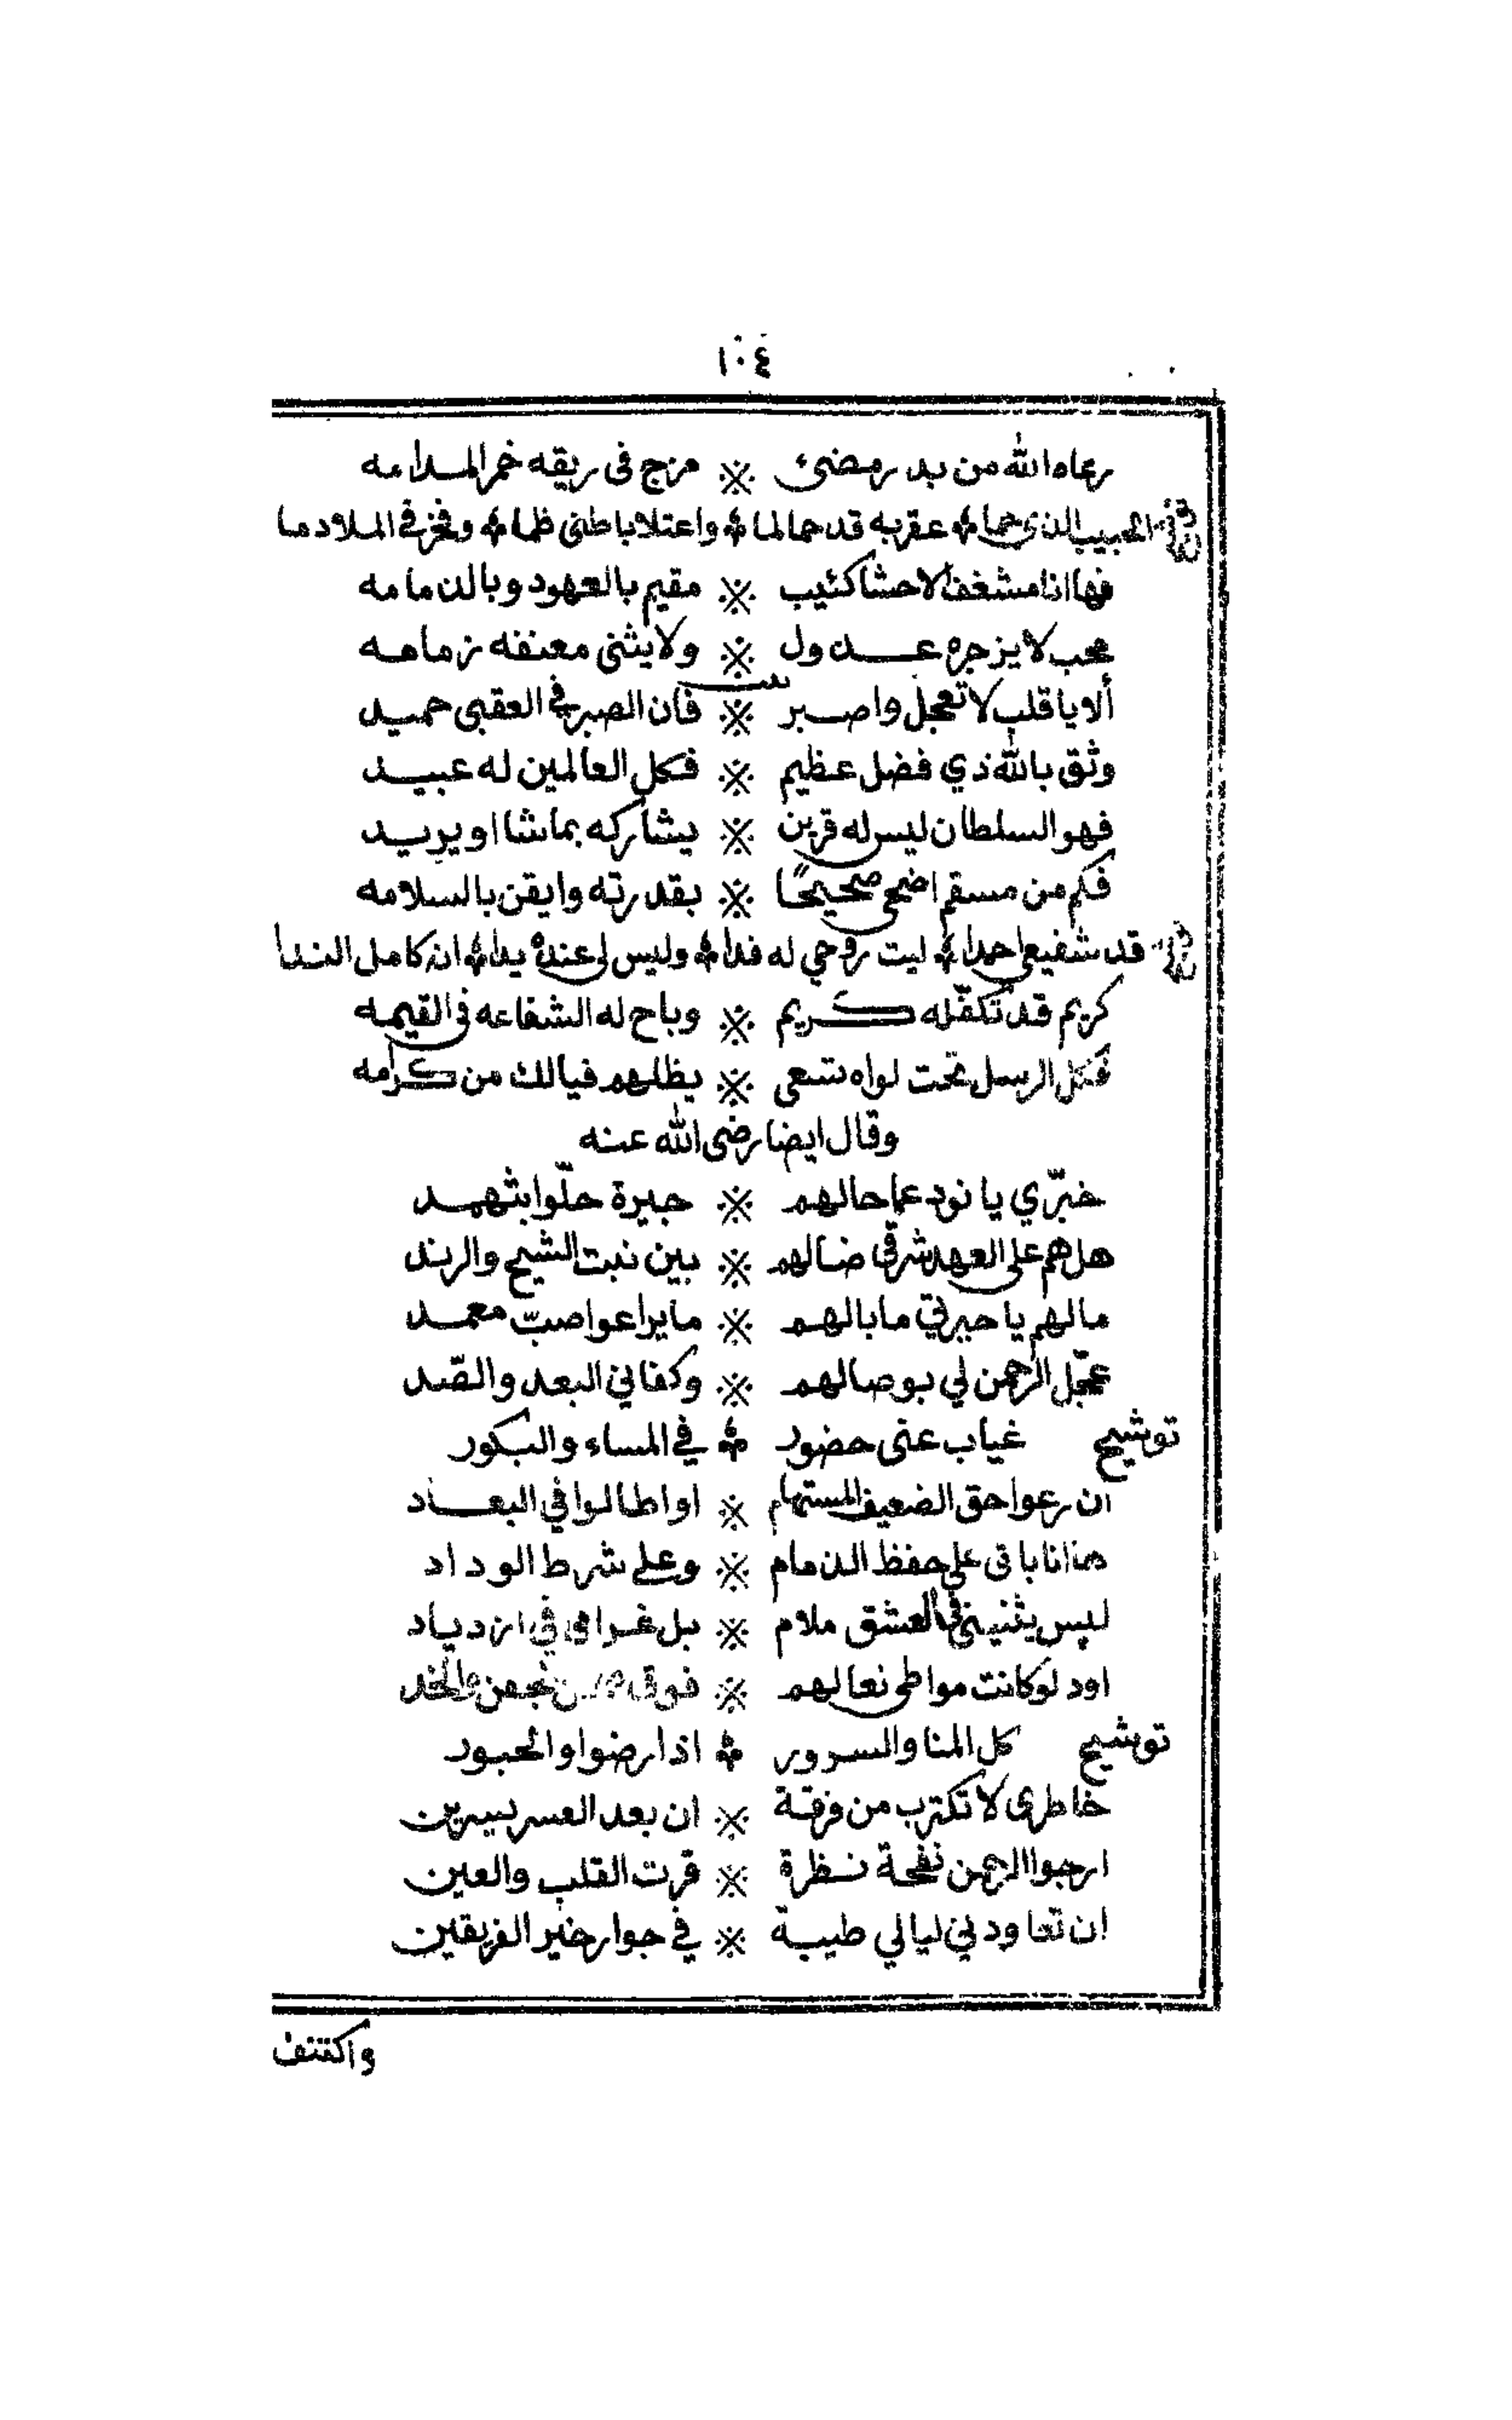 ١٠٤
رعاه الله من بدر مضئ ※ مزج فى ريقه خمر المدامه
الحبيب الذي حما ⁂ عقربه قد حما لما ⁂ واعتلا باطنى ظما ⁂ وفخر في الملا دما
فها انا مشغف الاحشا كئيب ※ مقيم بالعهود وبالذمامه
محب لا يزجره عـــذول ※ ولا يثنى معنفه زمامـه
بيت
ألا يا قلب لا تعجل واصـبر ※ فان الصبر في العقبى حميـد
وثق بالله ذي فضل عظيم ※ فكل العالمين له عبيـد
فهو السلطان ليس له قرين ※ يشاركه بما شا او يريـد
فكم من مسقم اضحى صحيحًا ※ بقدرته وايقن بالسلامه
قد شفيعى احمدا ⁂ ليت روحي له فدا ⁂ وليس لى عنده يدا ⁂ انه كامل الندا
كريم قد تكفّله كــريم ※ وباح له الشفاعه فى القيمـه
فكل الرسل تحت لواه تسعى ※ يظلهم فيالك من كـرامه
وقال ايضا رضى الله عنه
خبّري يا نود عما حالهم ※ جيرة حلّوا بثهمـد
هل هم على العهد شرقى ضالهم ※ بين نبت الشيح والرند
مالهم يا جيرتي ما بالهـم ※ ما يراعوا صبّ معمـد
عجّل الرحمن لي بوصالهم ※ وكفاني البعد والصّد
توشيح غياب عنى حضور ⁂ في المساء والبكور
ان رعوا حق الضعيف المستهام ※ او اطالوا في البعـاد
هذا انا باقى على حفظ الذمام ※ وعلى شرط الوداد
ليس يثنينى في العشق ملام ※ بل غرامى في ازدياد
اود لو كانت مواطى نعالهم ※ فوق جفن والخد
توشيح كل المنا والسرور ⁂ اذا رضوا والحبور
خاطرى لا تكترب من فرقـة ※ ان بعد العسر يسرين
ارجوا الرحمن نفحة نـظرة ※ قرت القلب والعين
ان تعاودني ليالي طيبـة ※ في جوار خير الفريقين
واكتنف